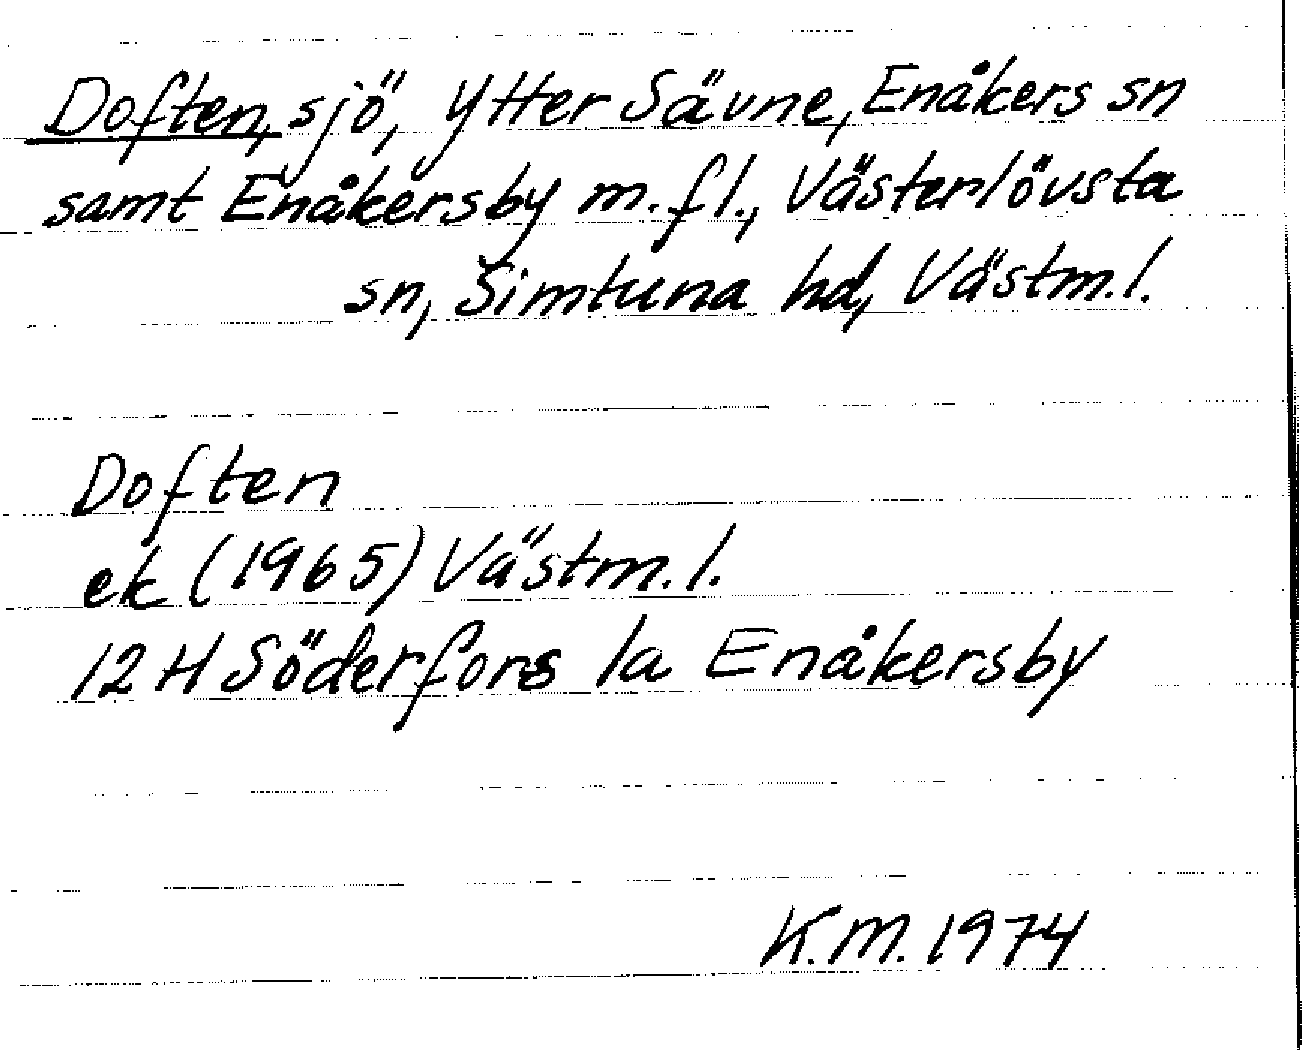 Doften, sjö, Ytter Sävne, Enåkers sn
samt Enåkersby m.fl., Västerlövsta
sn, Simtuna hd, Västm.l.
Doften
ek (1965) Västm.l.
12H Söderfors 1a Enåkersby
K.M. 1974